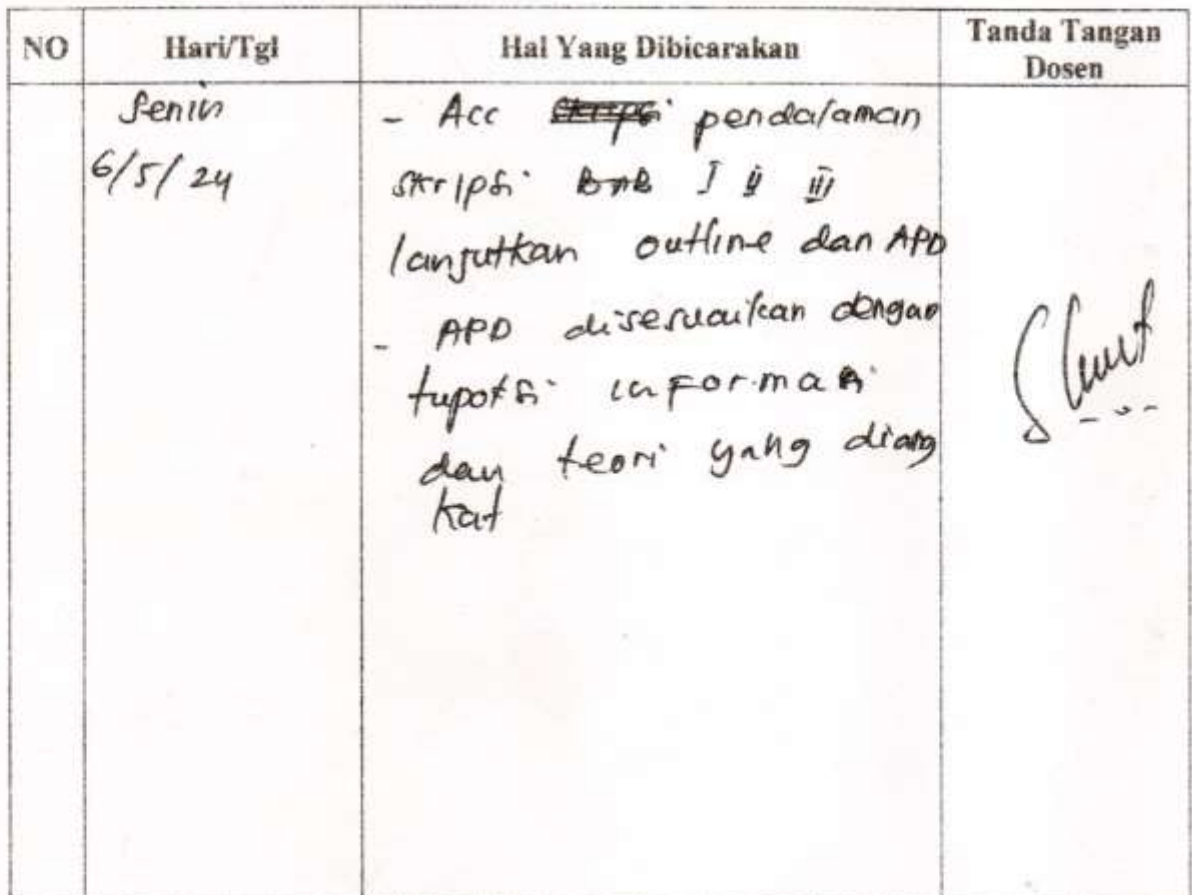 NO Hari/Tgl Hal Yang Dibicarakan Tanda Tangan Dosen
Senin
6/5/24
- Acc pendalaman
skripsi Bab I II III
lanjutkan outline dan APD
- APD disesuaikan dengan
tupoksi informasi
dan teori yang diang
kat